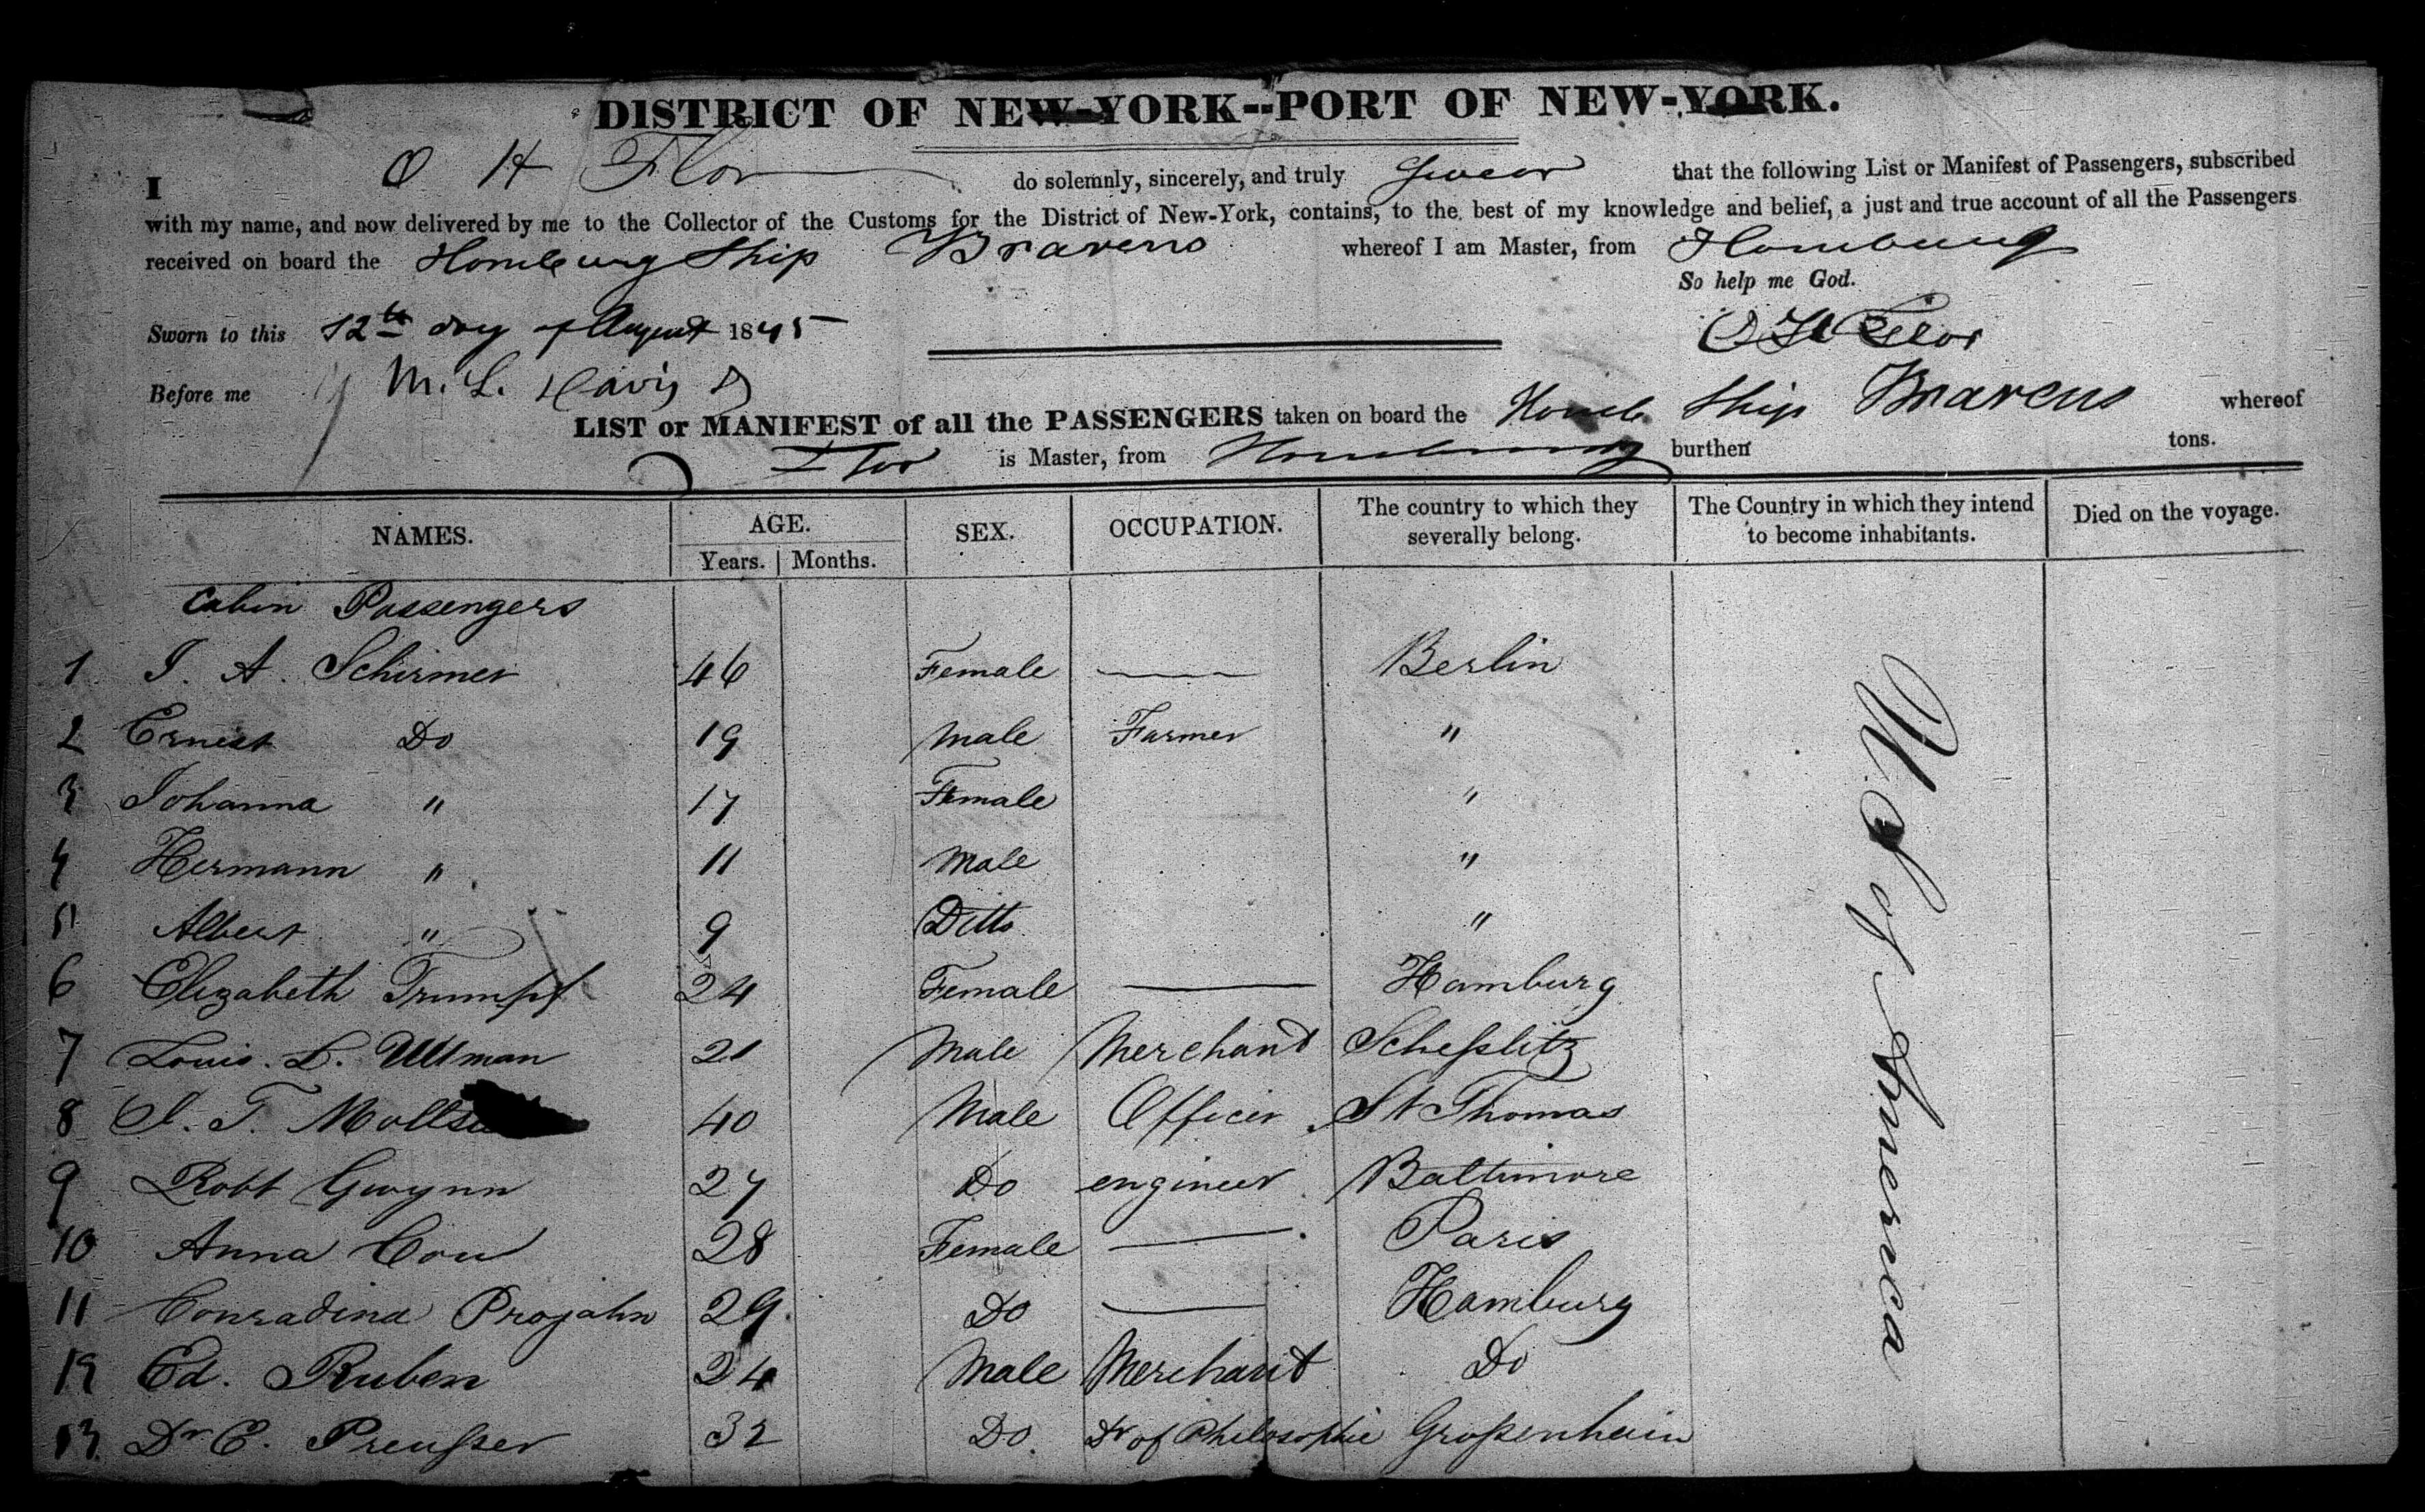 DISTRICT OF NEW-YORK--PORT OF NEW-YORK.
I O H Flor do solemnly, sincerely, and truly swear that the following List or Manifest of Passengers, subscribed
with my name, and now delivered by me to the Collector of the Customs for the District of New-York, contains, to the best of my knowledge and belief, a just and true account of all the Passengers
received on board the Hamburg Ship whereof I am Master, from Hamburg
So help me God.
Sworn to this 12th day of August 1845 O H Flor
Before me M. L. Davis
LIST or MANIFEST of all the PASSENGERS taken on board the Hamb Ship whereof
Flor is Master, from Hamburg burthen tons.
NAMES. AGE. SEX. OCCUPATION. The country to which they severally belong. The Country in which they intend to become inhabitants. Died on the voyage.
Years. Months.
Cabin Passengers
1 I. A. Schirmer 46 Female —— Berlin
2 Ernest Do 19 Male Farmer "
3 Johanna " 17 Female "
4 Hermann " 11 Male "
5 Albert " 9 Ditto "
6 Elizabeth Trumpf 24 Female —— Hamburg
7 Louis. L. Ullman 21 Male Merchant Scheßlitz
8 T. 40 Male Officer St Thomas
9 Robt Gwynn 27 Do engineer Baltimore
10 Anna 28 Female —— Paris
11 Conradina Projahn 29 Do —— Hamburg
12 Ed. Ruben 24 Male Merchant Do
13 Dr E. Preußer 32 Do. Dr of Philosophie Großenhain
U S of America